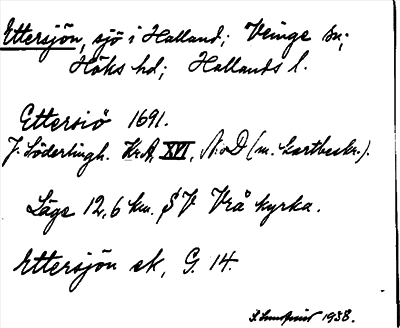 Ettersjön, sjö i Halland; Veinge sn;
Höks hd; Hallands l.
Ettersiö 1691.
J. Söderlingh. Kr.A, XVI, N:o D (m. kartbeskr.).
Läge 12,6 km. S V Vrå kyrka.
Ettersjön ek, G. 14.
1938.